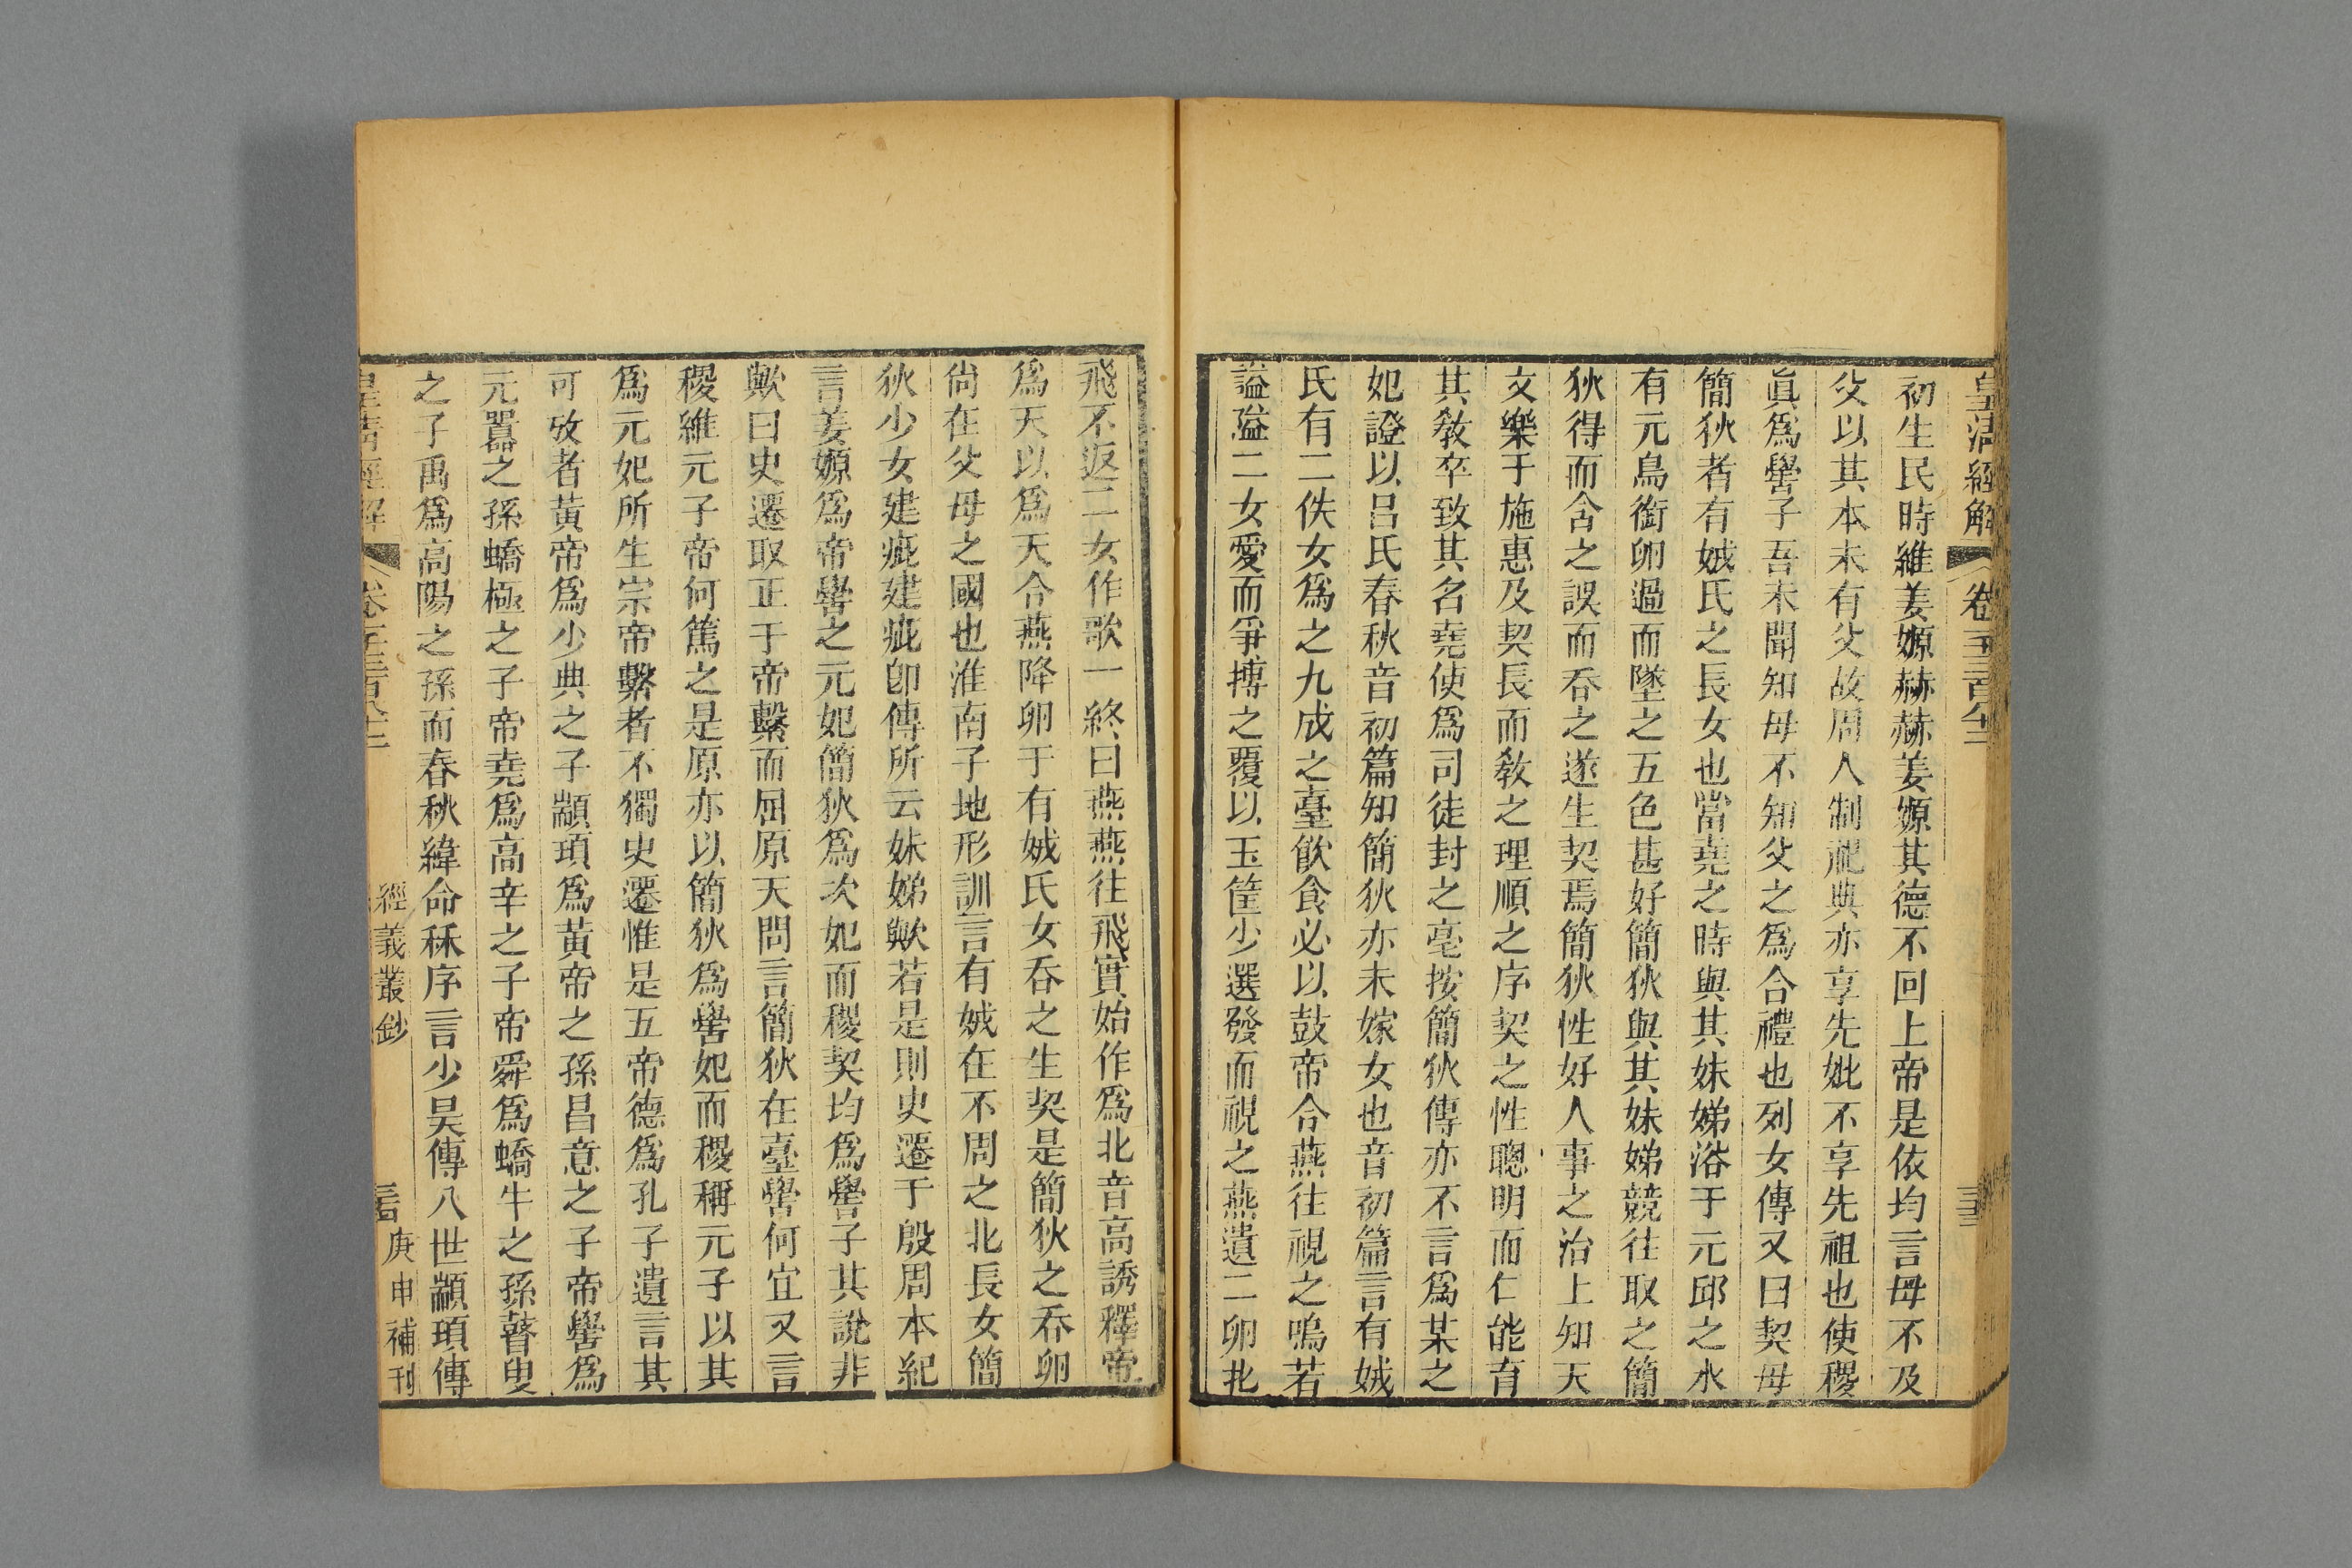 皇清經解
卷
初生民時維姜嫄赫赫姜嫄其德不回上帝是依均言母不及
父以其本未有父故周人制祀典亦享先妣不享先祖也使稷
眞爲嚳子吾未聞知母不知父之爲合禮也列女傳又曰契母
簡狄者有娀氏之長女也當堯之時與其妹娣浴于元邱之水
有元鳥銜卵過而墜之五色甚好簡狄與其妹娣競往取之簡
狄得而含之誤而吞之遂生契焉簡狄性好人事之治上知天
文樂于施惠及契長而敎之理順之序契之性聰明而仁能育
其敎卒致其名堯使爲司徒封之亳按簡狄傳亦不言爲某之
妃證以呂氏春秋音初篇知簡狄亦未嫁女也音初篇言有娀
氏有二佚女爲之九成之臺飮食必以鼓帝令燕往視之鳴若
謚隘二女愛而爭搏之覆以玉筐少選發而視之燕遺二卵北
飛不返二女作歌一終曰燕燕往飛實始作爲北音高誘釋帝
爲天以爲天令燕降卵于有娀氏女呑之生契是簡狄之呑卵
尙在父母之國也淮南子地形訓言有娀在不周之北長女簡
狄少女建疵建疵卽傳所云妹娣歟若是則史遷于殷周本紀
言姜嫄爲帝嚳之元妃簡狄爲次妃而稷契均爲嚳子其說非
歟曰史遷取正于帝繫而屈原天問言簡狄在臺嚳何宜又言
稷維元子帝何篤之是原亦以簡狄爲嚳妃而稷稱元子以其
爲元妃所生宗帝繫者不獨史遷惟是五帝德爲孔子遺言其
可攷者黃帝爲少典之子顓頊爲黃帝之孫昌意之子帝嚳爲
元囂之孫蟜極之子帝堯爲高辛之子帝舜爲蟜牛之孫瞽叟
之子禹爲高陽之孫而春秋緯命秝序言少昊傳八世顓頊傳
皇清經解
經義叢鈔
庚申補刊